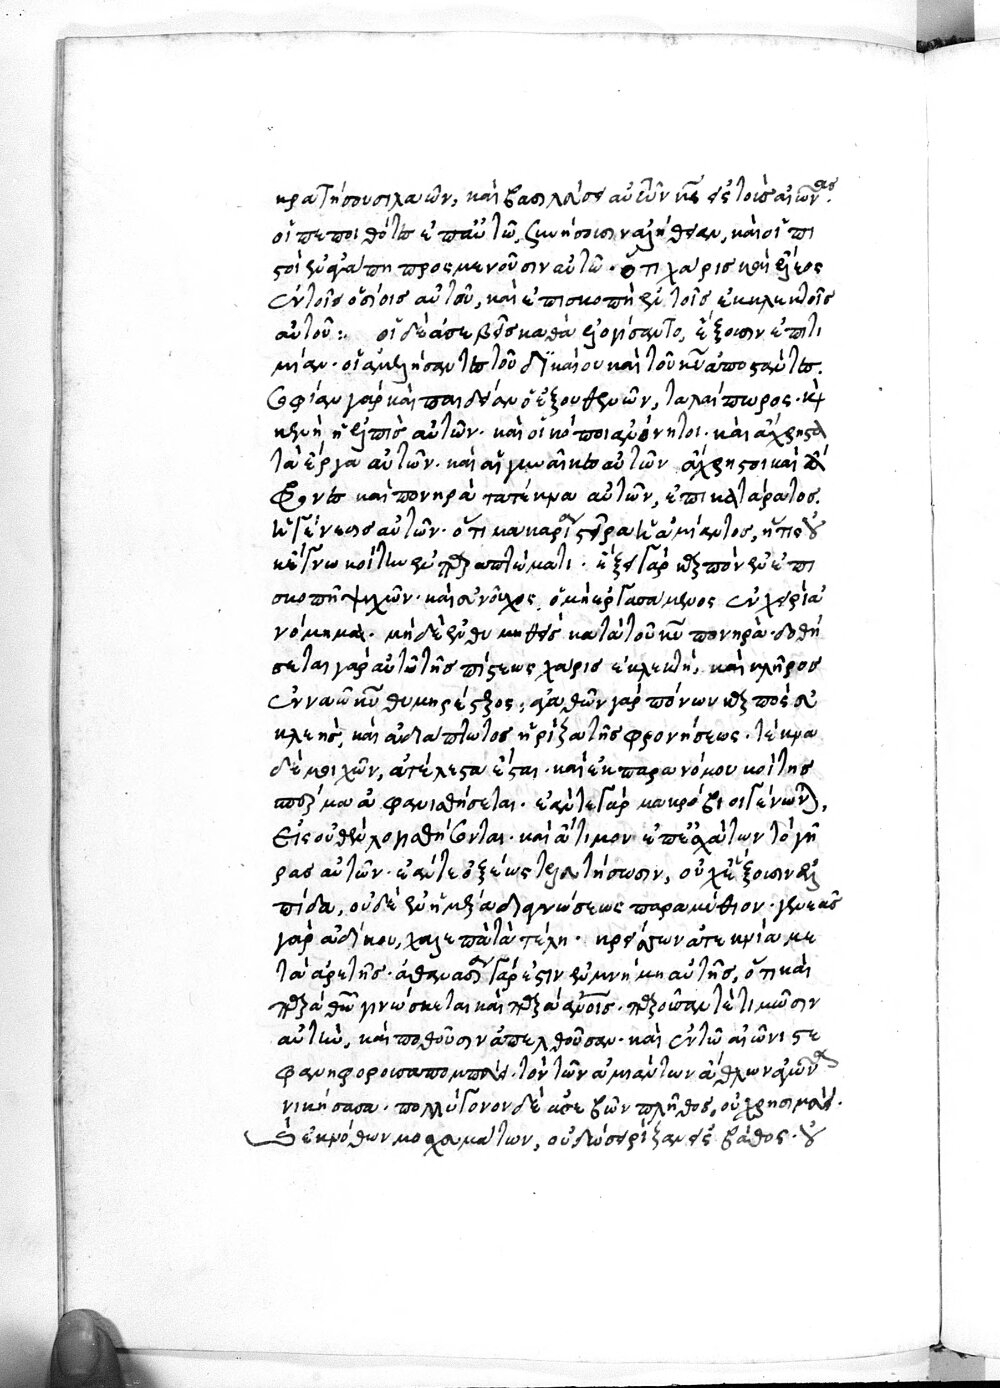 κρατήσουσι λαῶν, καὶ βασιλεύσει αὐτῶν κς εἰς τοὺς αἰῶνας.
οἱ πεποιθότες ἐπ' αὐτῶ, συνήσουσιν ἀλήθειαν, καὶ οἱ πι
στοὶ ἐν ἀγάπη προσμενοῦσιν αὐτῶ· ὅτι χάρις καὶ ἔλεος
ἐν τοῖς ὁσίοις αὐτοῦ, καὶ ἐπισκοπὴ ἐν τοῖς ἐκλεκτοῖς
αὐτοῦ: οἱ δὲ ἀσεβεῖς καθὰ ἐλογίσαντο, ἕξουσιν ἐπιτι
μίαν· οἱ ἀμελήσαντες τοῦ δικαίου καὶ τοῦ κυ ἀποστάντες.
σοφίαν γὰρ καὶ παιδείαν ὁ ἐξουθενῶν, ταλαίπωρος· καὶ
κενὴ ἡ ἐλπὶς αὐτῶν· καὶ οἱ κόποι ἀνόνητοι· καὶ ἄχρηστα
τὰ ἔργα αὐτῶν· καὶ αἱ γυναῖκες αὐτῶν ἄχρηστοι καὶ
καὶ πονηρὰ τὰ τέκνα αὐτῶν, ἐπικατάρατος
ἡ γένεσις αὐτῶν· ὅτι μακαρία στεῖρα ἡ ἀμίαντος, ἥτις οὐ
κ ἔγνω κοίτην ἐν παραπτώματι· ἕξει γὰρ καρπὸν ἐν ἐπι
σκοπῆ ψυχῶν· καὶ εὐνοῦχος ὁ μὴ ἐργασάμενος ἐν χειρὶ ἀ
νόμημα· μηδὲ ἐνθυμηθεὶς κατὰ τοῦ κυ πονηρά· δοθή
σεται γὰρ αὐτῶ τῆς πίστεως χάρις ἐκλεκτή, καὶ κλῆρος
ἐν ναῶ κυ θυμηρέστερος· ἀγαθῶν γὰρ πόνων καρπὸς εὐ
κλεής, καὶ ἀδιάπτωτος ἡ ῥίζα τῆς φρονήσεως· τέκνα
δὲ μοιχῶν, ἀτέλεστα ἔσται· καὶ ἐκ παρανόμου κοίτης
σπέρμα ἀφανισθήσεται· ἐάν τε γὰρ μακρόβιοι γένωνται,
εἰς οὐθὲν λογισθήσονται· καὶ ἄτιμον ἐπ' ἐσχάτων τὸ γῆ
ρας αὐτῶν· ἐάν τε ὀξέως τελευτήσωσιν, οὐχ ἕξουσιν ἐλ
πίδα, οὐδὲ ἐν ἡμέρα διαγνώσεως παραμύθιον· γενεᾶς
γὰρ ἀδίκου, χαλεπὰ τὰ τέλη· κρείσσων ἀτεκνία με
τὰ ἀρετῆς· ἀθανασία γάρ ἐστιν ἐν μνήμη αὐτῆς, ὅτι καὶ
παρὰ θῶ γινώσκεται καὶ παρὰ ἀνοις· παροῦσάν τε τιμῶσιν
αὐτὴν, καὶ ποθοῦσιν ἀπελθοῦσαν· καὶ ἐν τῶ αἰῶνι στε
φανηφοροῦσα πομπεύει· τὸν τῶν ἀμιάντων ἄθλων ἀγῶνα
νικήσασα· πολύγονον δὲ ἀσεβῶν πλῆθος, οὐ χρησιμεύσει·
καὶ ἐκ νόθων μοσχευμάτων, οὐ δώσει ῥίζαν εἰς βάθος· οὐ